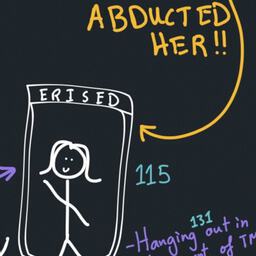 ABDUCTED
HER!!
ERISED
115
131
-Hanging out in
of TM